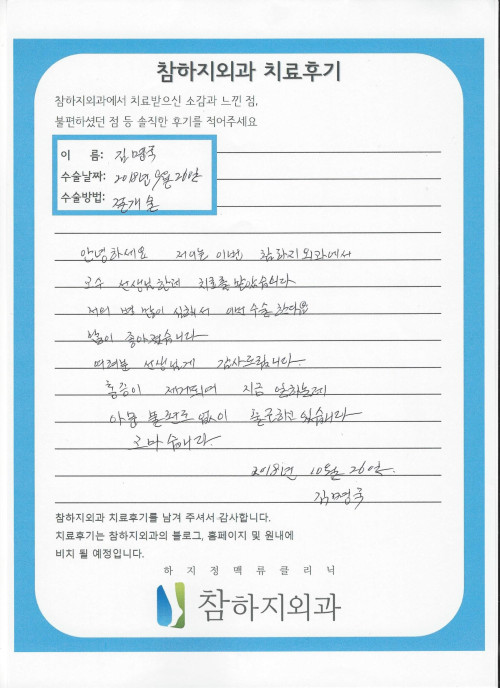 참하지외과 치료후기
참하지외과에서 치료받으신 소감과 느낀 점,
불편하셨던 점 등 솔직한 후기를 적어주세요
이 름: 김명국
수술날짜: 2018년 9월 26일
수술방법: 절개술
안녕하세요 저는 이번 참하지외과에서
선생님한테 치료를 받았습니다
저의 병 많이 심해서 이번 수술 한다음
많이 좋아졌습니다
여러분 선생님게 감사드립니다.
통증이 제거되여 지금 일하는데
아무 불편도 없이 출근하고 있습니다
고마습니다.
2018년 10월 26일.
김명국
참하지외과 치료후기를 남겨 주셔서 감사합니다.
치료후기는 참하지외과의 블로그, 홈페이지 및 원내에
비치 될 예정입니다.
하지정맥류클리닉
참하지외과